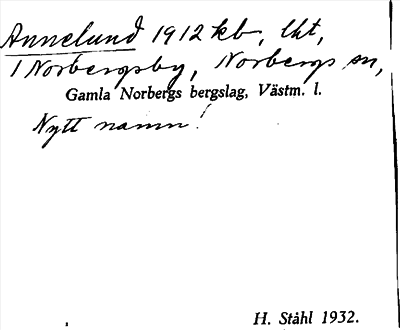 Annelund 1912 kb, lht,
1 Norbergsby, Norbergs sn,
Gamla Norbergs bergslag, Västm. l.
Nytt namn!
H. Ståhl 1932.